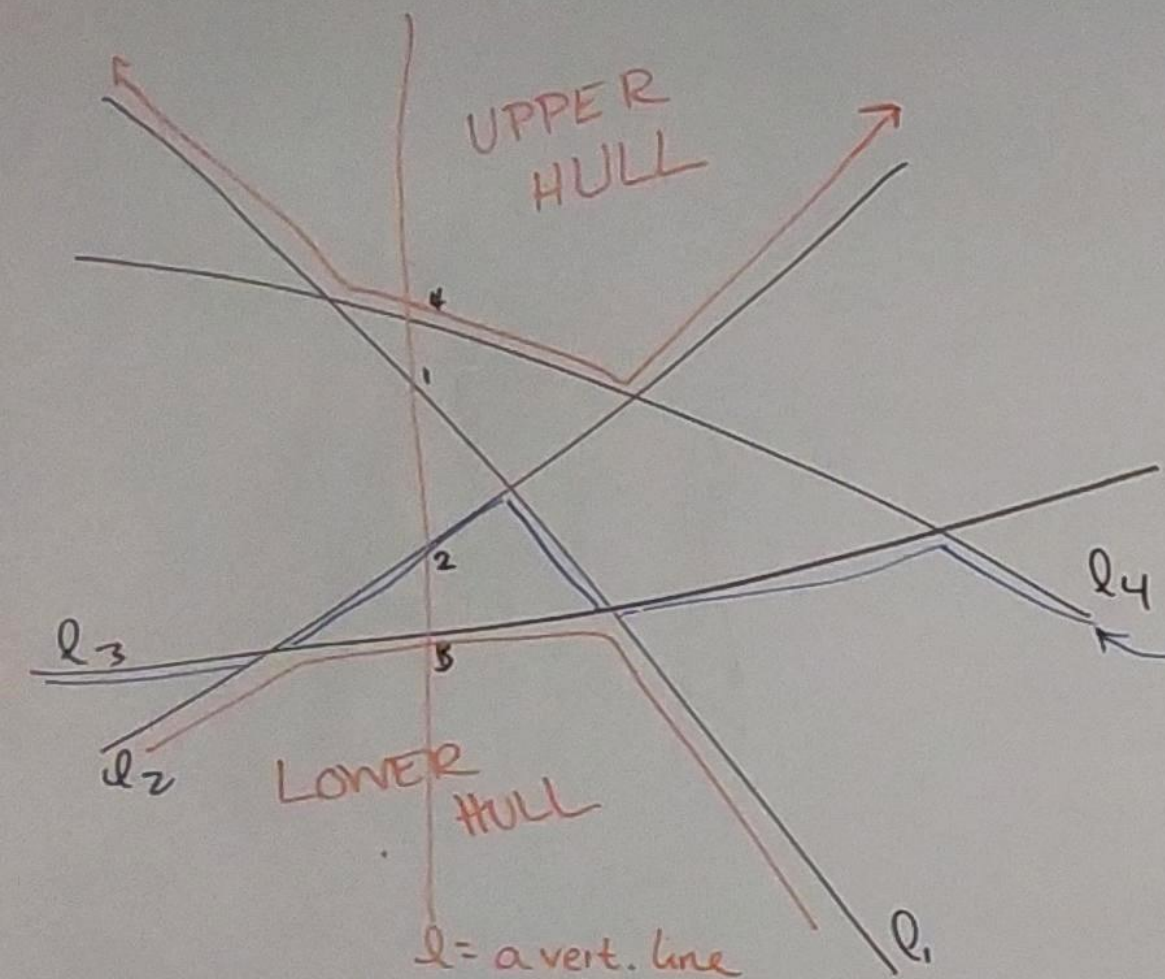 UPPER
HULL
4
1
2
3
l3
l4
l2
LOWER
HULL
l1
l = a vert. line